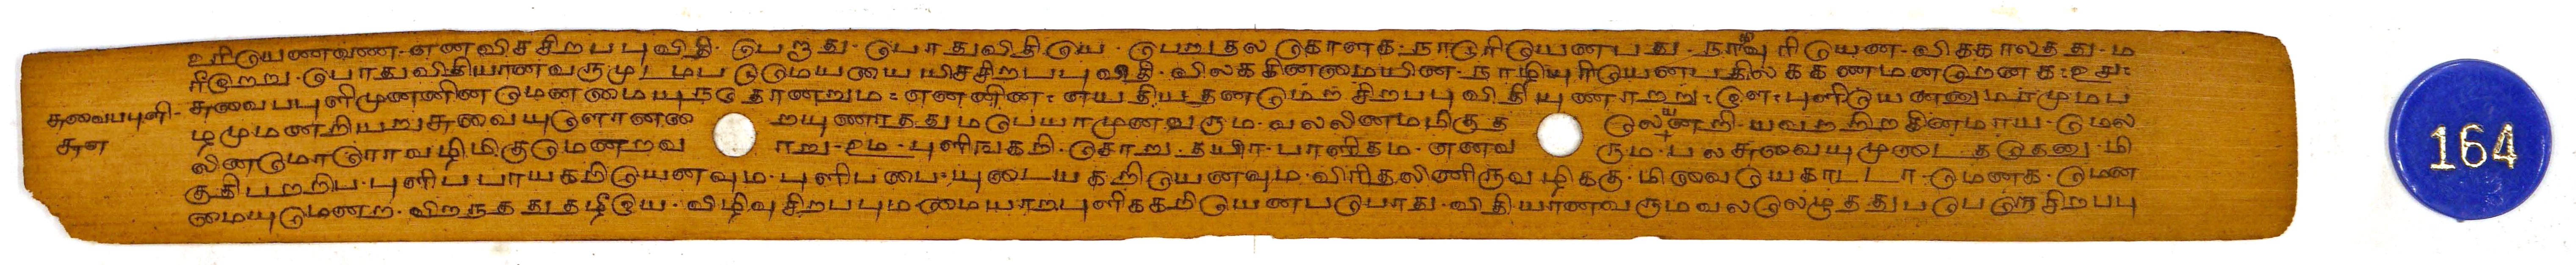 உரியெணவண. எனவிச சிறபபுவிதி. பெறாது. பொதுவிதியெ. பெறுதல கொளக. நாடுரியெனபது. நாவுரியென. விககாலதது. ம
ரீறெறு. பொதுவிதியானவருமுடமப டுமெயயையிசசிறபபு விதி. விலககினமையின. நாழியுரியெனபதிலககணமனறெனக: உசு:
சுவைபபுளிமுனனின மெனமையுநதோனறும: எனனின: எயதியதனமெற சிறபபு விதியுணாறறு: ளெ: புளியெனனுமரமுமப
சுவைபபுளி- ழமுமனறியறுசுவையுளொனறை றயுணாததும பெயாமுனவரும. வலலினமமிகுத லெனறி. யவறறிறகினமாய. மெல
சுஎ லினமொரொவழிமிகுமெனறவ ாறு-உம. புளிஙகறி. சொறு. தயிா. பாளிதம. எனவ ரும. பலசுவையுமுடைததெனு. மி
குதிபறறிப. புளிபபாயகறியெனவும. புளிபபையுடையகறியெனவும. விரிதலினிருவழிககு. மிவையெகாடடா. மெனக. மென
மையுமெனற. விறநததுதழீஇய. விழிவு சிறபபுமமையாறபுளிககறியெனபபொது. விதியானவருமவலலெழுததுபபெறூசிறபபு
164